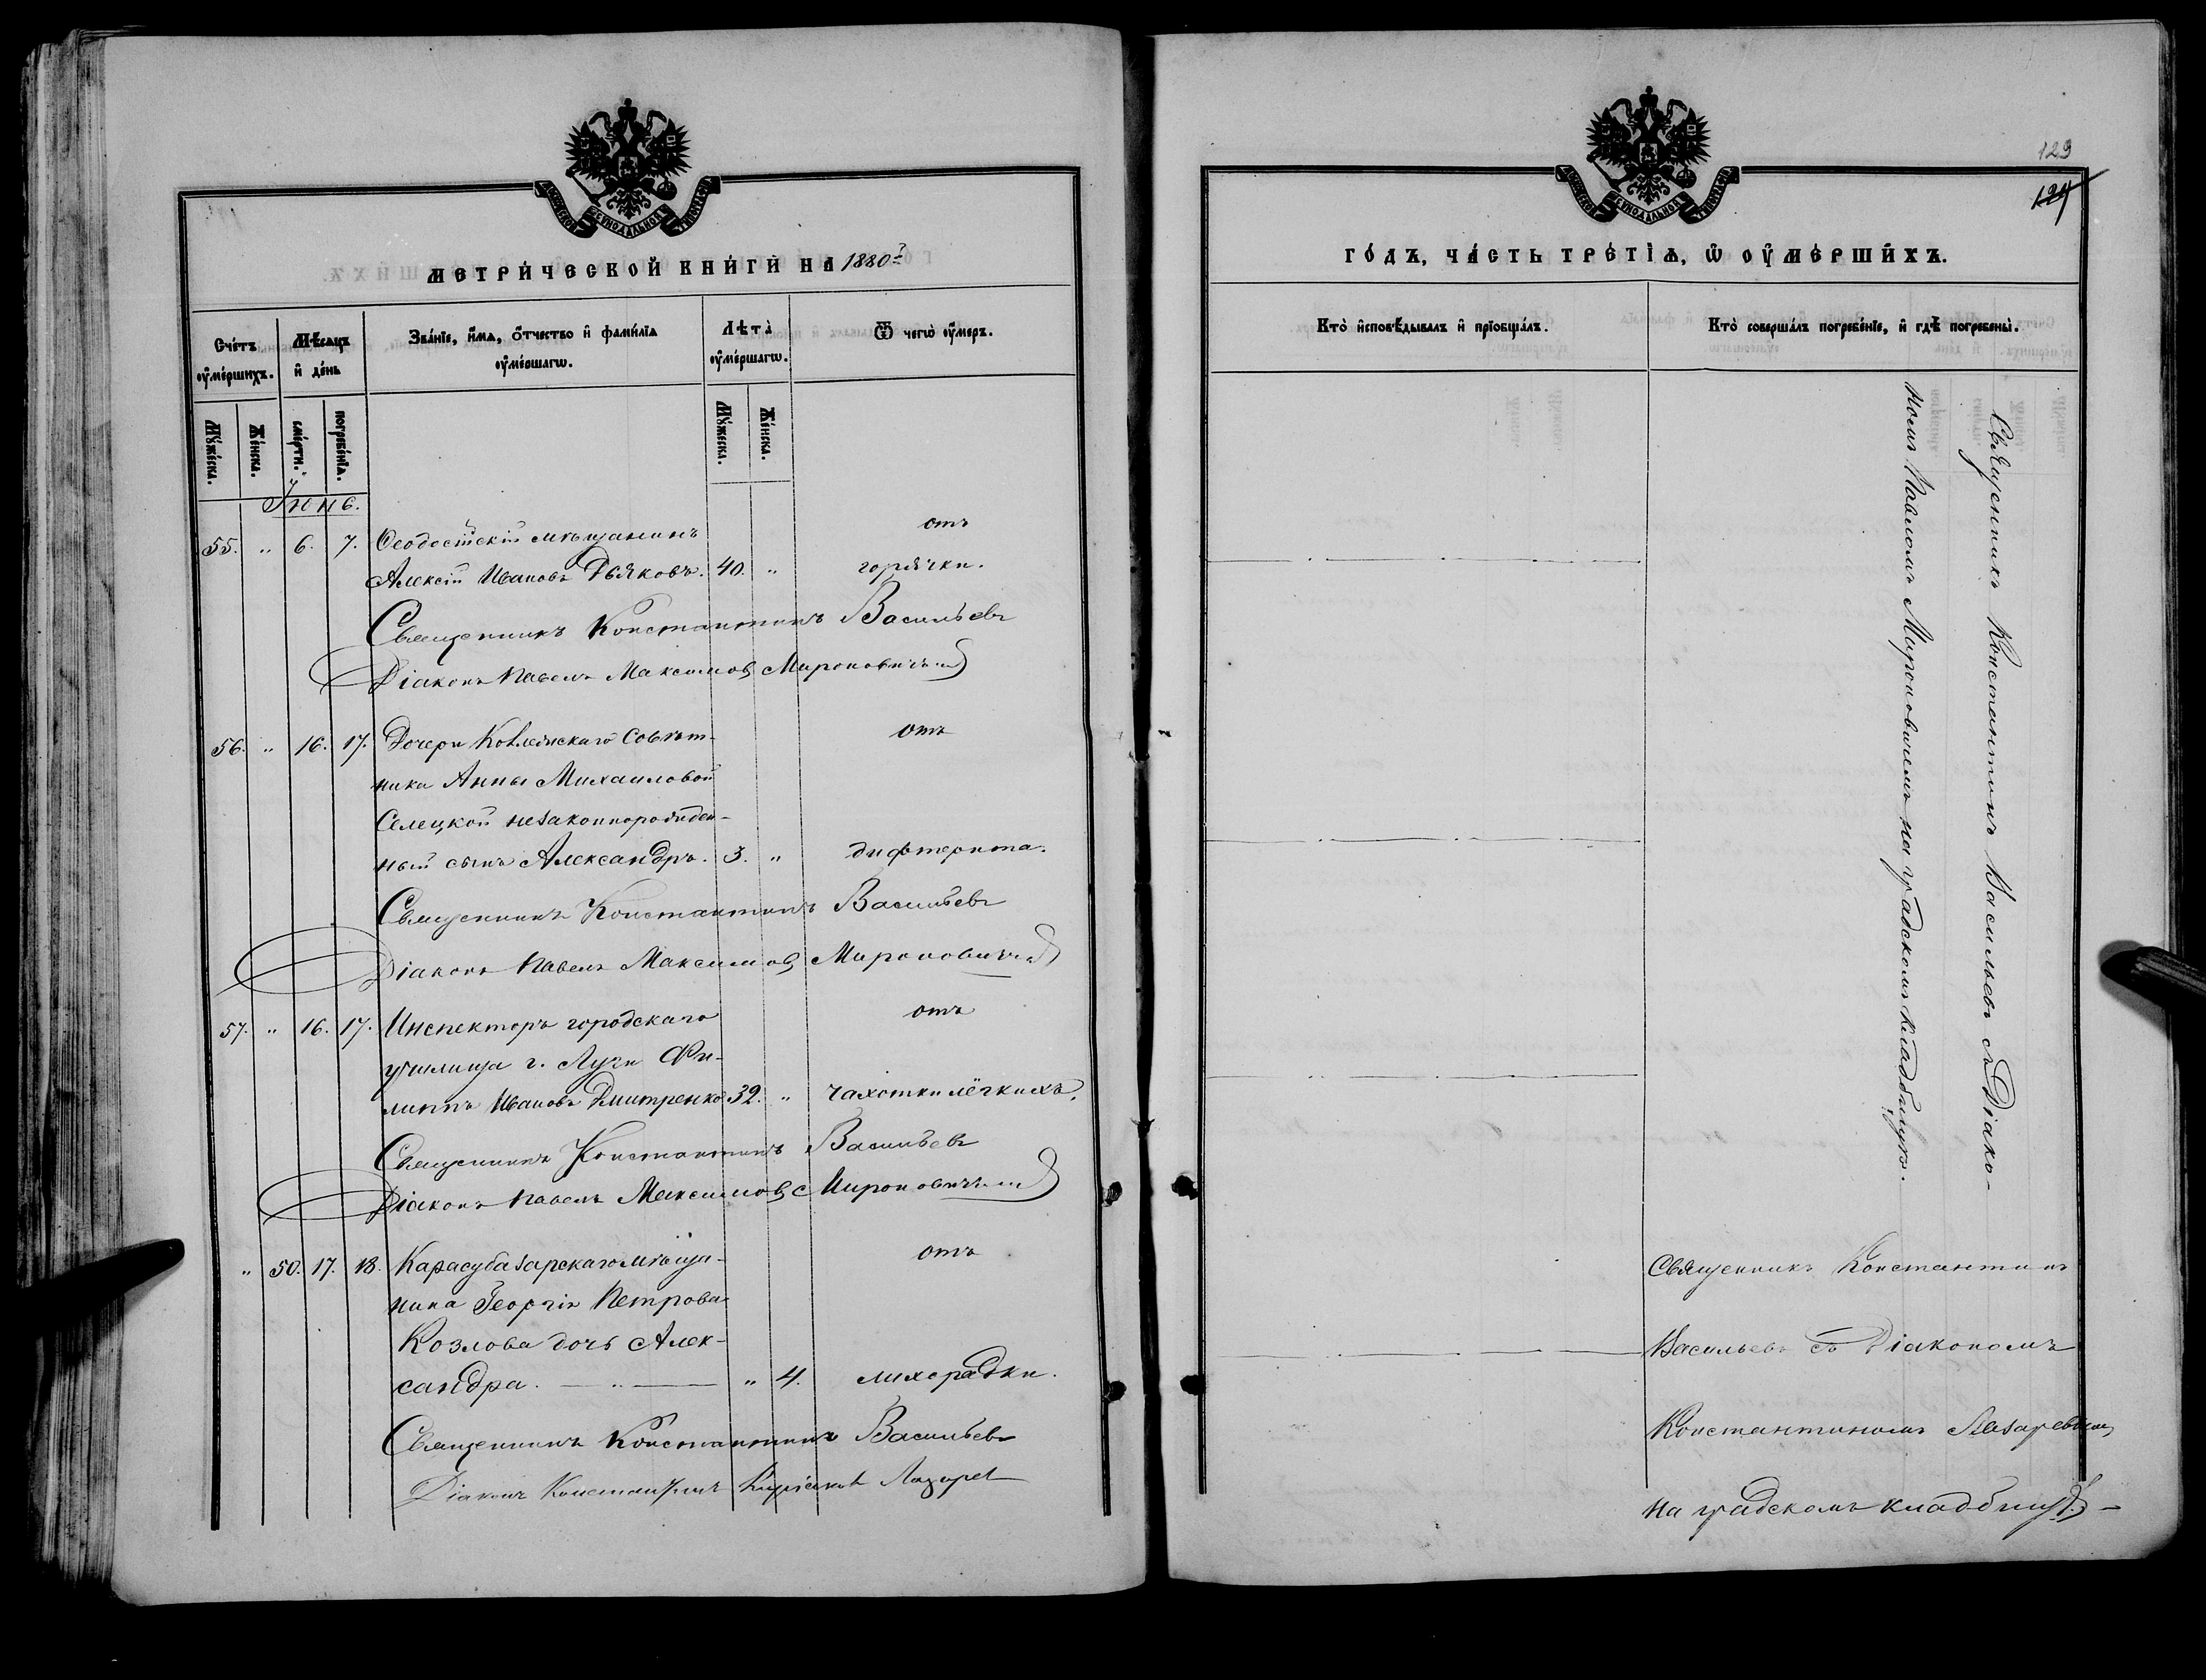 МЕТРИ́ЧЕСКОЙ КНИ́ГИ НА 1880й
Сче́тъ оу҆ме́ршихъ.
Мѣ́сяцъ и҆ де́нь
Зва́нїе, и҆́мѧ, ѻ҆́тчество и҆ фами́лїѧ оу҆ме́ршагѡ.
Лѣта̀ оу҆ме́ршагѡ.
Ѿ чегѡ̀ оу҆́меръ.
Мꙋ́жеска.
Же́нска.
сме́рти.
погребе́нїѧ.
Мꙋ́жеска.
Же́нска.
Іюнь.
отъ
55. " 6. 7. Ѳеодосійскій мѣщанинъ
Алексій Ивановъ Дьяковъ. 40. " горячки.
Священникъ Константинъ Васильевъ
Діаконъ Павелъ Максимовъ Мироновичъ
56. " 16. 17. Дочери Коллежскаго Совѣт- отъ
ника Анны Михаиловой
Селецкой незаконнорожден-
ный сынъ Александръ. 3. " дифтерита.
Священникъ Константинъ Васильевъ
Діаконъ Павелъ Максимовъ Мироновичъ
57. " 16. 17. Инспекторъ городскаго отъ
училища г. Луги Фи-
липпъ Ивановъ Дмитренко 32. " чахотки лёгкихъ.
Священникъ Константинъ Васильевъ
Діаконъ Павелъ Максимовъ Мироновичъ
" 50. 17. 18. Карасубазарскаго мѣща- отъ
нина Георгія Петрова
Козлова дочь Алек-
сандра. " 4. лихорадки.
Священникъ Константинъ Васильевъ
Діаконъ Константинъ Лазарев
129
124
ГО́ДЪ, ЧА́СТЬ ТРЕ́ТЇѦ, Ѡ҆ ОУ҆МЕ́РШИХЪ.
Кто̀ и҆сповѣ́дывалъ и҆ прїѡбща́лъ.
Кто̀ соверша́лъ погребе́нїе, и҆ гдѣ̀ погребены̀.
Священникъ Константинъ Васильевъ съ Діако-
номъ Павломъ Мироновичемъ на градскомъ кладбищѣ.
Священникъ Константинъ
Васильевъ съ Діакономъ
Константиномъ Лазаревымъ
на градскомъ кладбищѣ.